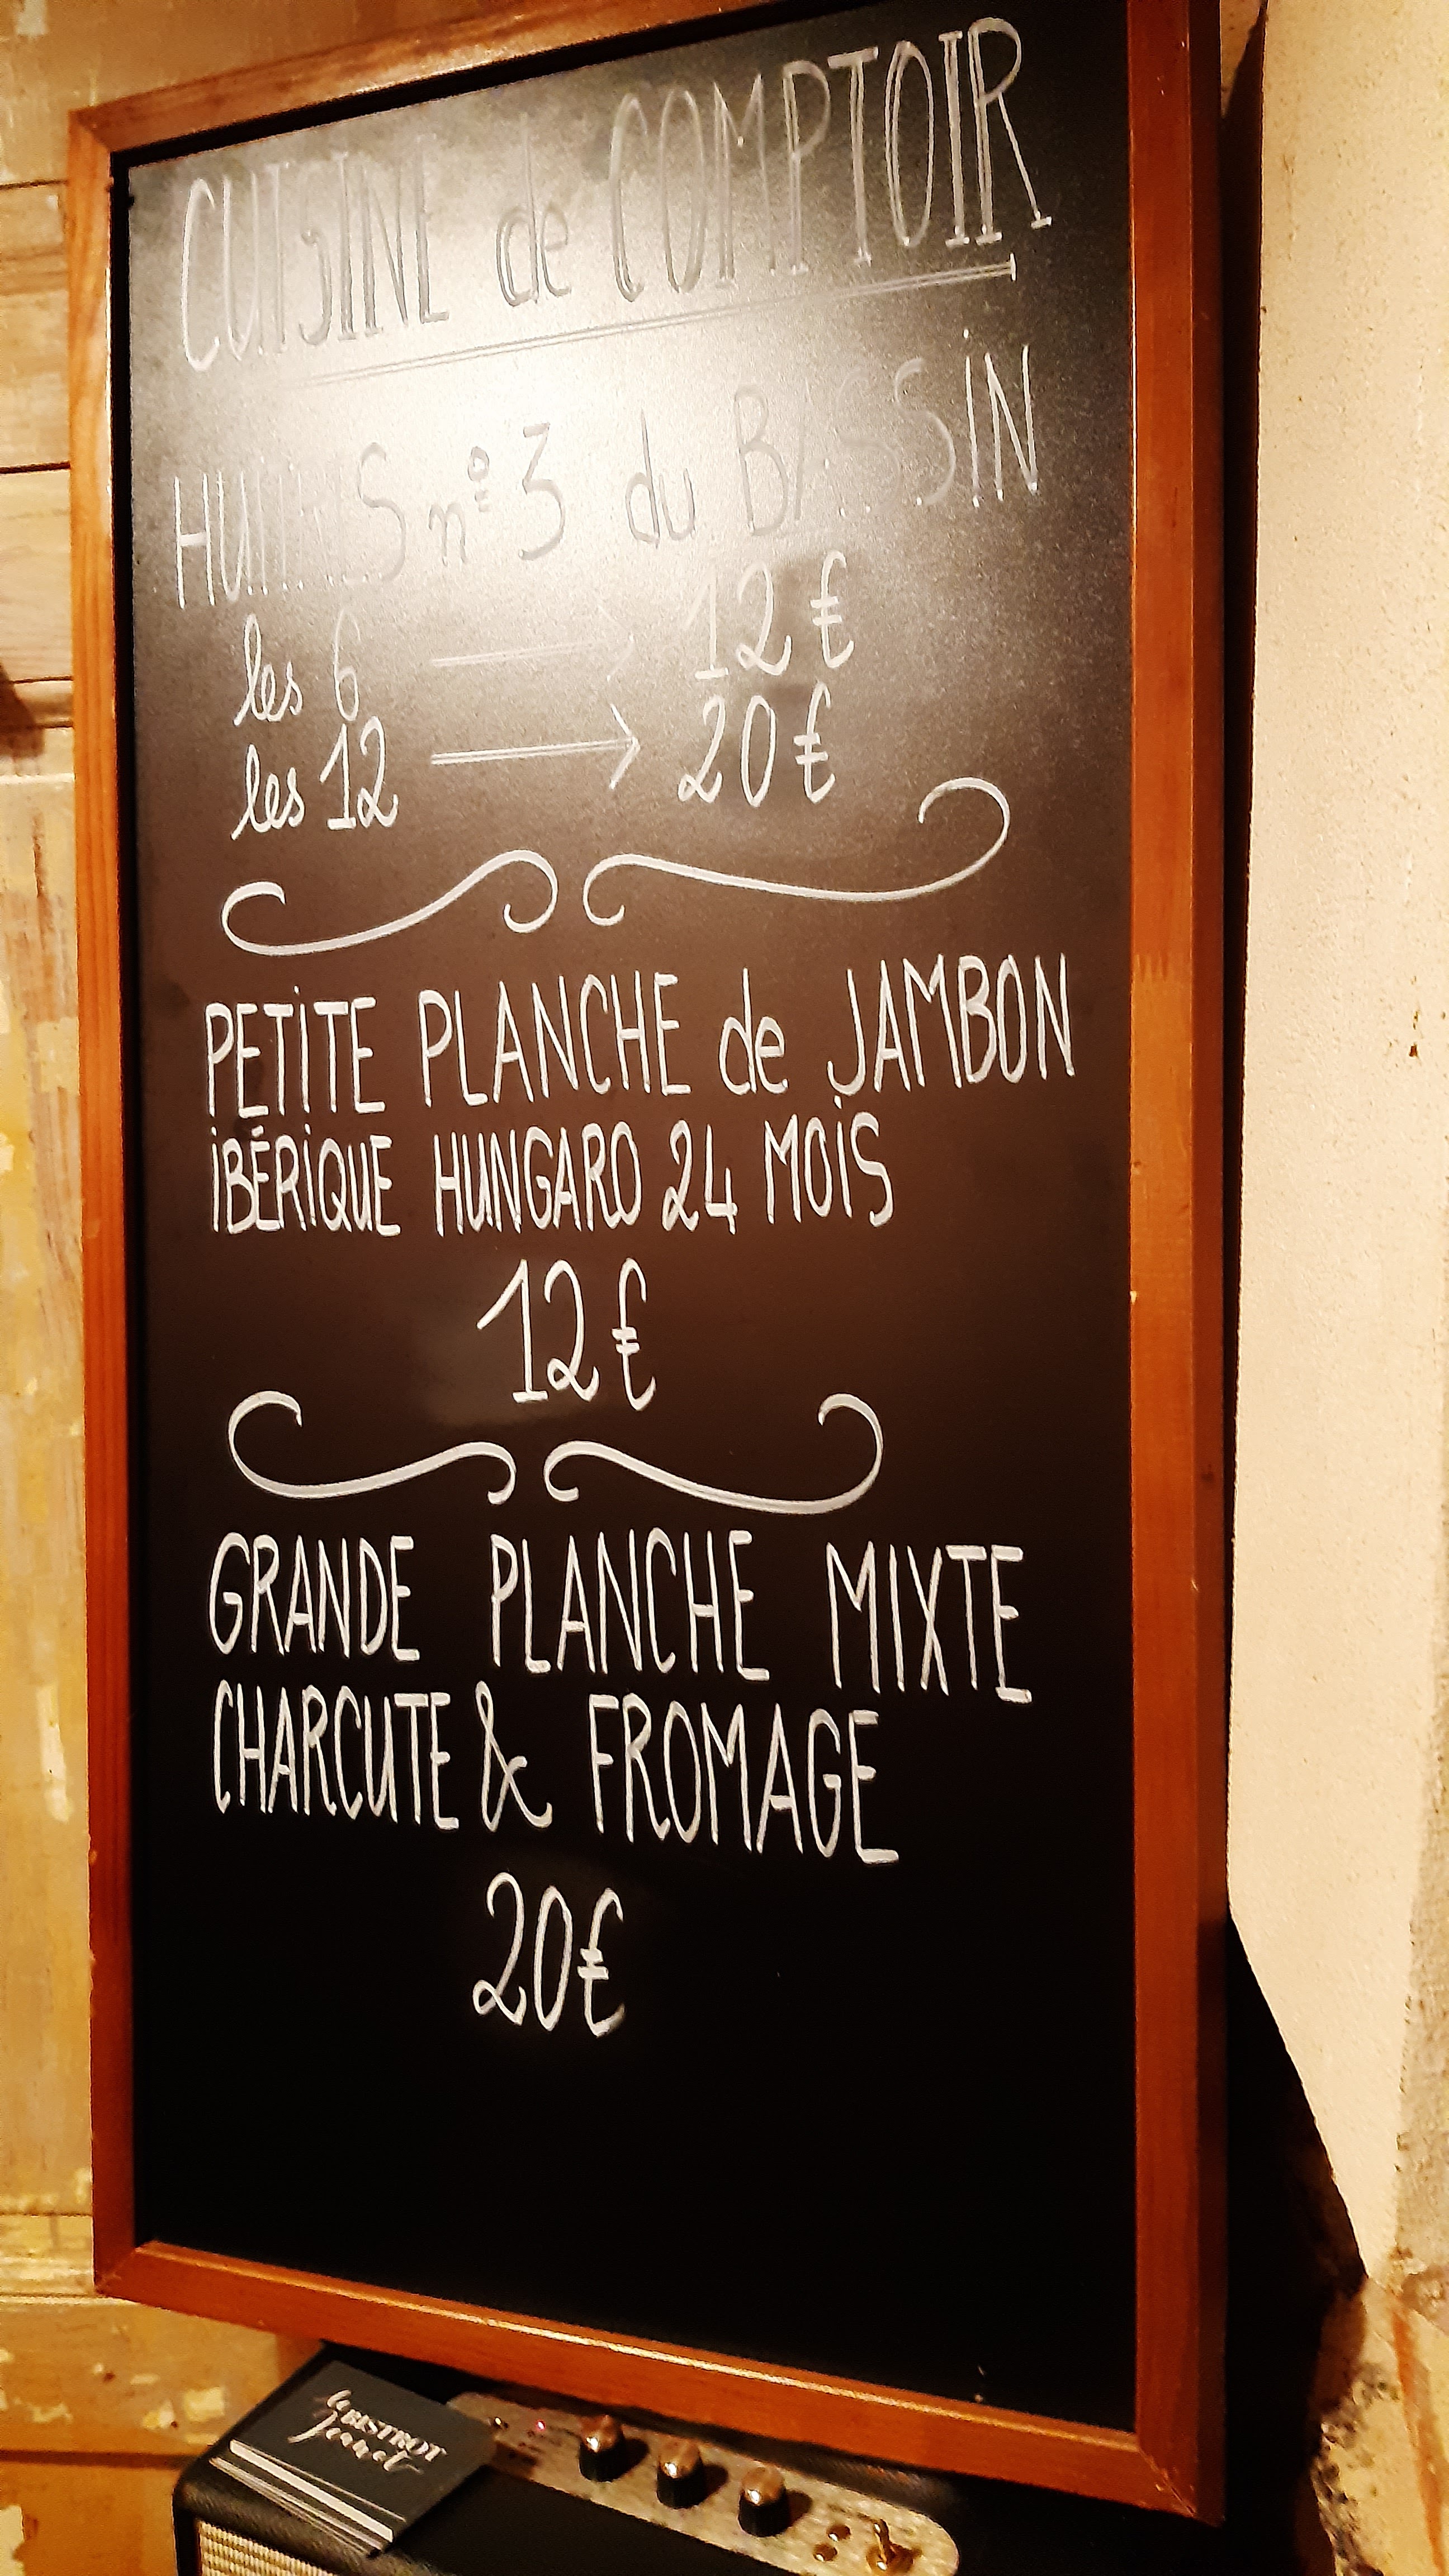 CUISINE de COMPTOIR
HUITRES n° 3 du BASSIN
les 6 → 12 €
les 12 → 20 €
PETITE PLANCHE de JAMBON
IBÉRIQUE HUNGARO 24 MOIS
12 €
GRANDE PLANCHE MIXTE
CHARCUTE & FROMAGE
20 €
le BISTROT